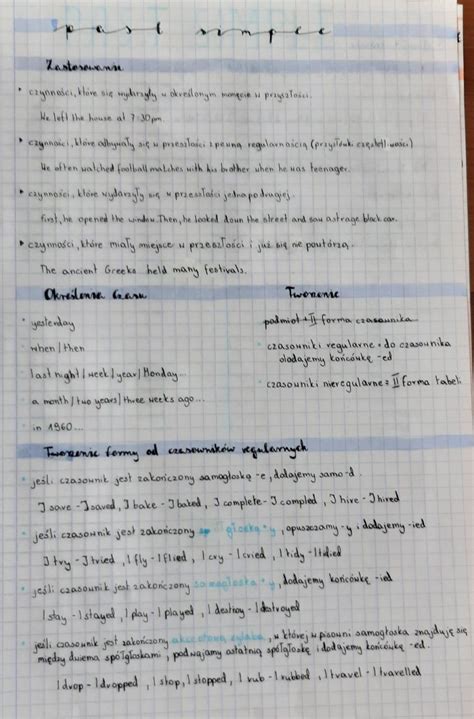 past simple
Zastosowanie
czynności, które się wydarzyły w określonym momęcie w przyszłości.
We left the house at 7:30pm.
czynności, które odbywały się w przeszłości z pewną regularnością (przysłówki częstotliwości)
He often watched football matches with his brother when he was teenager.
czynności, które wydarzyły się w przeszłości jedna po drugiej.
First, he opened the window. Then, he looked down the street and saw a strage black car.
czynności, które miały miejsce w przeszłości i już się nie powtórzą.
The ancient Greeks held many festivals.
Określenia czasu
Tworzenie
yesterday
podmiot + II forma czasownika
when / then
czasowniki regularne = do czasownika
dodajemy końcówkę -ed
last night / week / year / Monday...
czasowniki nieregularne = II forma tabeli
a month / two years / three weeks ago...
in 1960...
Tworzenie formy od czasowników regularnych
jeśli czasownik jest zakończony samogłoską -e, dodajemy samo -d.
I save - I saved, I bake - I baked, I complete - I compled, I hire - I hired
jeśli czasownik jest zakończony głoską -y, opuszczamy -y i dodajemy -ied
I try - I tried, I fly - I flied, I cry - I cried, I tidy - I tidied
jeśli czasownik jest zakończony samogłoską -y, dodajemy końcówkę -ied
I stay - I stayed, I play - I played, I destroy - I destroyed
jeśli czasownik jest zakończony akcentowaną sylabą, w której w pisowni samogłoska znajduje się
między dwiema spółgłoskami, podwajamy ostatnią spółgłoskę i dodajemy końcówkę -ed.
I drop - I dropped, I stop, I stopped, I rub - I rubbed, I travel - I travelled